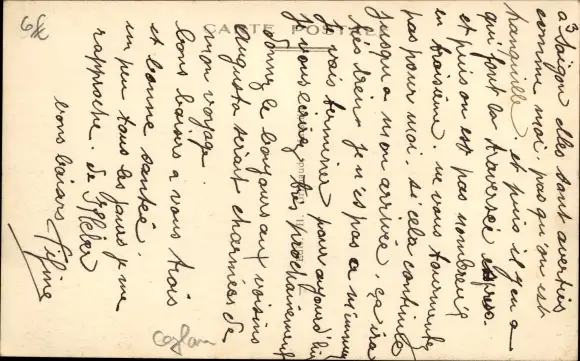 CARTE POSTALE
a Saigon elles sont averties
comme moi. pas qu'on est
tranquille. et puis il y en a
qui font la traversée exprès.
et puis on est pas nombreux
en troisième. ne vous tourmentez
pas pour moi. si cela continue
jusqu'a mon arrivée. ça ira
très bien. je n'es pas a m'ennuyer
je vais terminer pour aujourd'hui
je vous écrirez très prochainement
donnez le bonjour aux voisins
Augusta serait charmées de
mon voyage.
bons baisers a vous trois
et bonne santée.
un peu tous les jours je me
rapproche. de
bons baisers Fifine
Ceylan